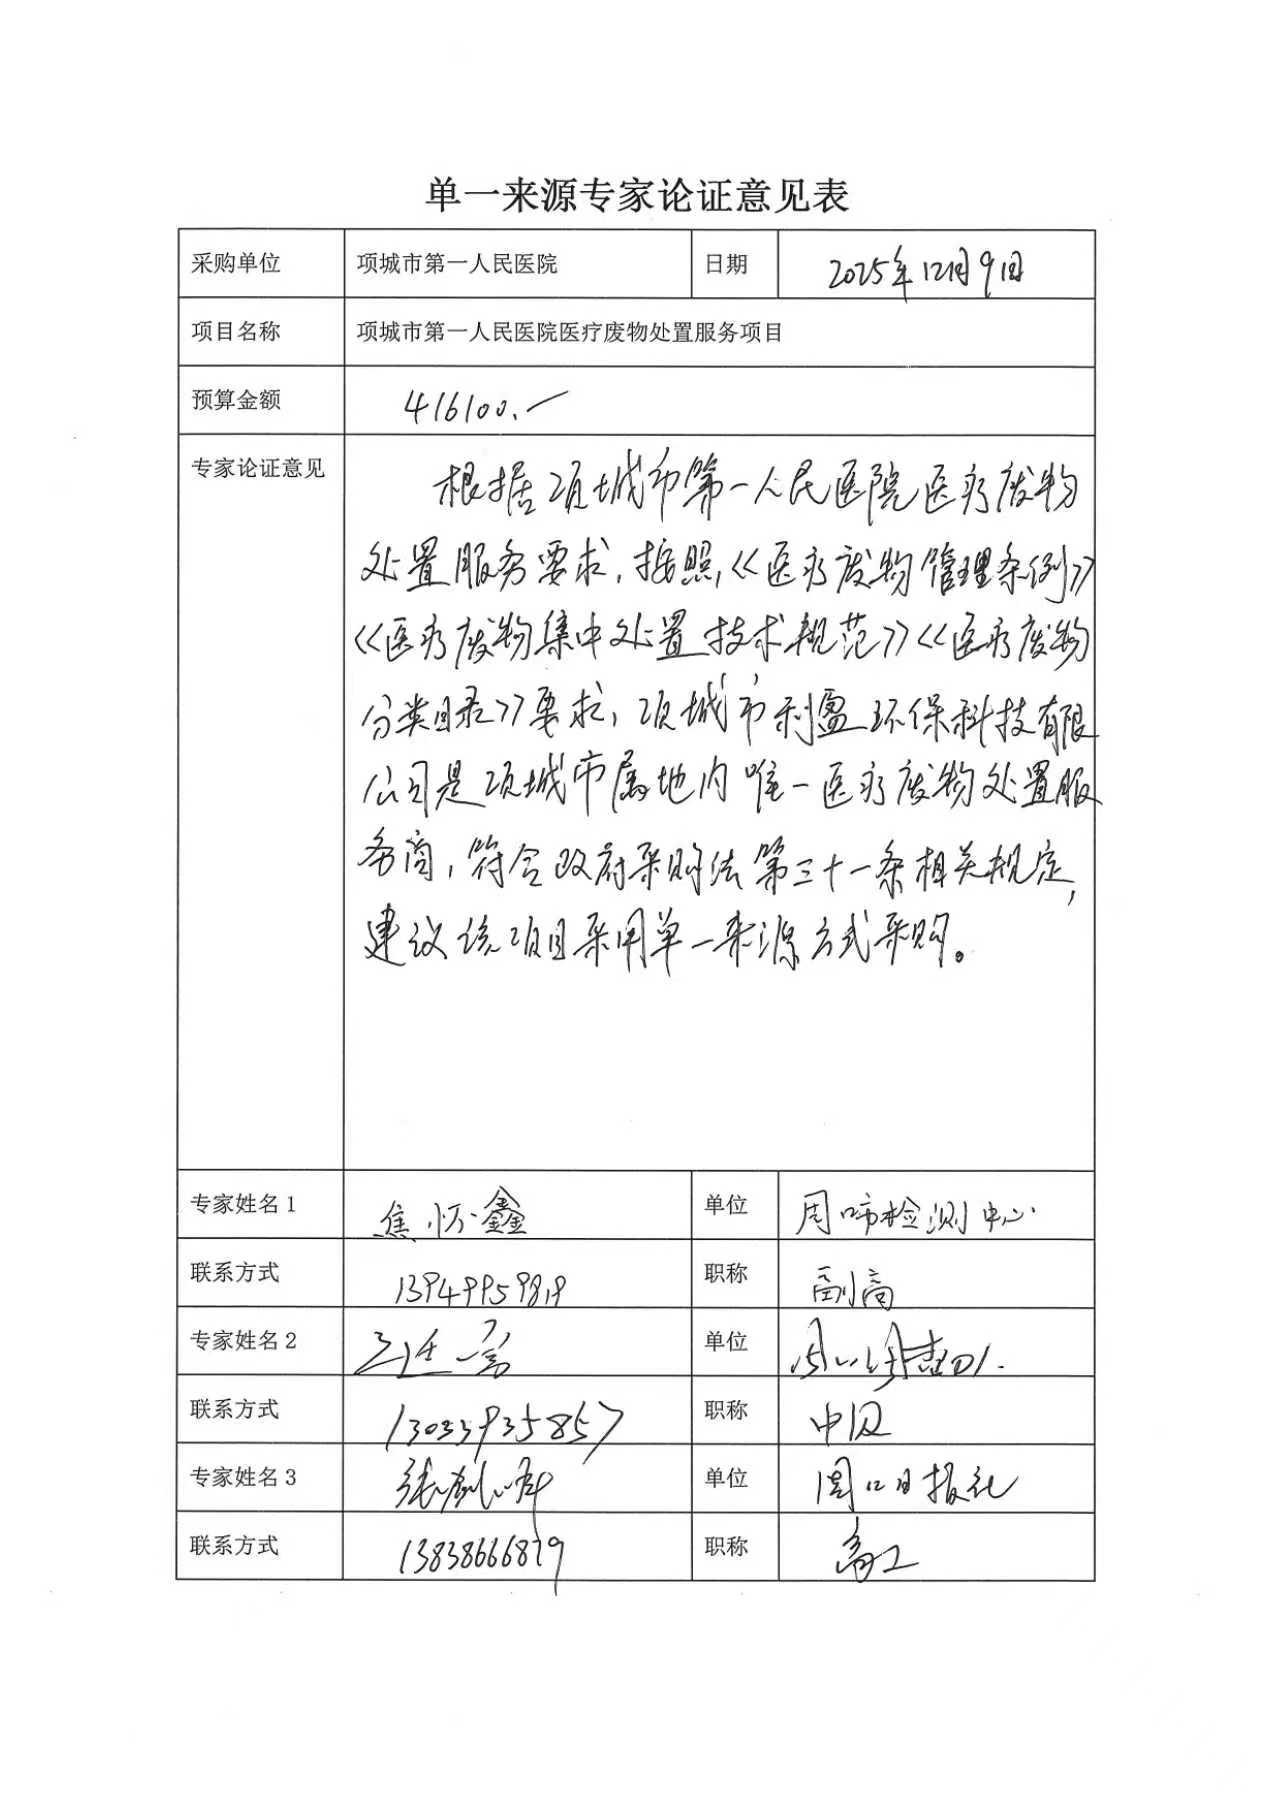 单一来源专家论证意见表
采购单位 项城市第一人民医院 日期 2025年12月9日
项目名称 项城市第一人民医院医疗废物处置服务项目
预算金额 416100.一
专家论证意见 根据项城市第一人民医院医疗废物
处置服务要求,按照,《医疗废物管理条例》
《医疗废物集中处置技术规范》《医疗废物
分类目录》要求,项城市利盈环保科技有限
公司是项城市属地内唯一医疗废物处置服
务商,符合政府采购法第三十一条相关规定,
建议该项目采用单一来源方式采购。
专家姓名1 焦怀鑫 单位 检测中心
联系方式 13949959819 职称 副高
专家姓名2 单位
联系方式 13033935857 职称 中级
专家姓名3 张 单位 周口日报社
联系方式 13838666879 职称 高工